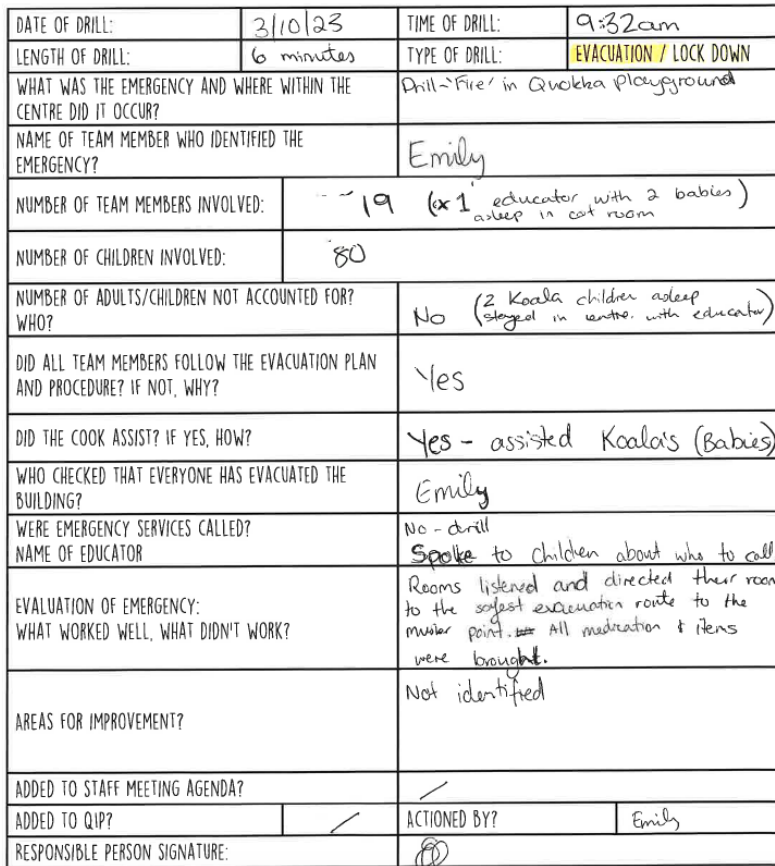 DATE OF DRILL: 3/10/23 TIME OF DRILL: 9:32am
LENGTH OF DRILL: 6 minutes TYPE OF DRILL: EVACUATION / LOCK DOWN
WHAT WAS THE EMERGENCY AND WHERE WITHIN THE
CENTRE DID IT OCCUR?
Drill-'Fire' in Quokka Playground
NAME OF TEAM MEMBER WHO IDENTIFIED THE
EMERGENCY?
Emily
NUMBER OF TEAM MEMBERS INVOLVED: 19 (x1 educator with 2 babies)
asleep in cot room
NUMBER OF CHILDREN INVOLVED: 80
NUMBER OF ADULTS/CHILDREN NOT ACCOUNTED FOR?
WHO?
No (2 Koala children asleep
stayed in centre. with educator)
DID ALL TEAM MEMBERS FOLLOW THE EVACUATION PLAN
AND PROCEDURE? IF NOT, WHY?
Yes
DID THE COOK ASSIST? IF YES, HOW?
Yes - assisted Koala's (Babies)
WHO CHECKED THAT EVERYONE HAS EVACUATED THE
BUILDING?
Emily
WERE EMERGENCY SERVICES CALLED?
NAME OF EDUCATOR
No - drill
Spoke to children about who to call
EVALUATION OF EMERGENCY:
WHAT WORKED WELL, WHAT DIDN'T WORK?
Rooms listened and directed their room
to the safest evacuation route to the
muster point. All medication & items
were brought.
AREAS FOR IMPROVEMENT?
Not identified
ADDED TO STAFF MEETING AGENDA? /
ADDED TO QIP? / ACTIONED BY? Emily
RESPONSIBLE PERSON SIGNATURE: